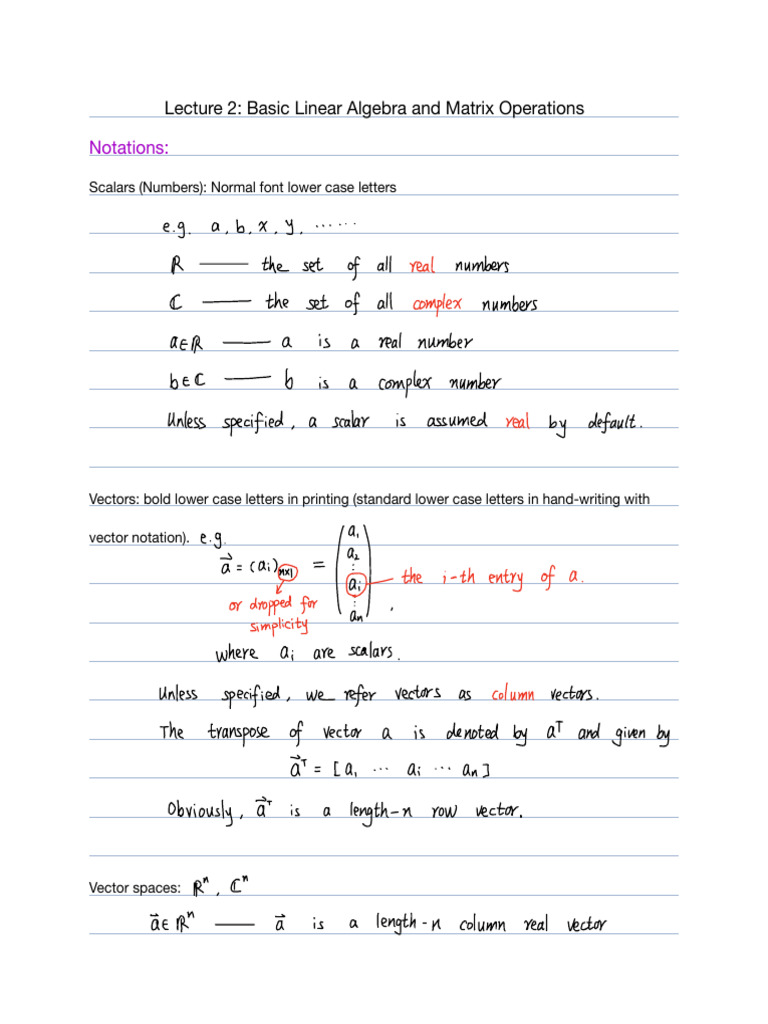 Lecture 2: Basic Linear Algebra and Matrix Operations
Notations:
Scalars (Numbers): Normal font lower case letters
e.g. a, b, x, y, ......
ℝ —— the set of all real numbers
ℂ —— the set of all complex numbers
a∈ℝ —— a is a real number
b∈ℂ —— b is a complex number
Unless specified, a scalar is assumed real by default.
Vectors: bold lower case letters in printing (standard lower case letters in hand-writing with
vector notation). e.g.
a⃗ = (aᵢ)ₙₓ₁ = ( a₁ a₂ ⋮ aᵢ ⋮ aₙ ) — the i-th entry of a.
or dropped for
simplicity
,
where aᵢ are scalars.
Unless specified, we refer vectors as column vectors.
The transpose of vector a is denoted by aᵀ and given by
a⃗ᵀ = [a₁ ⋯ aᵢ ⋯ aₙ]
Obviously, a⃗ᵀ is a length-n row vector.
Vector spaces: ℝⁿ, ℂⁿ
a⃗∈ℝⁿ —— a⃗ is a length-n column real vector